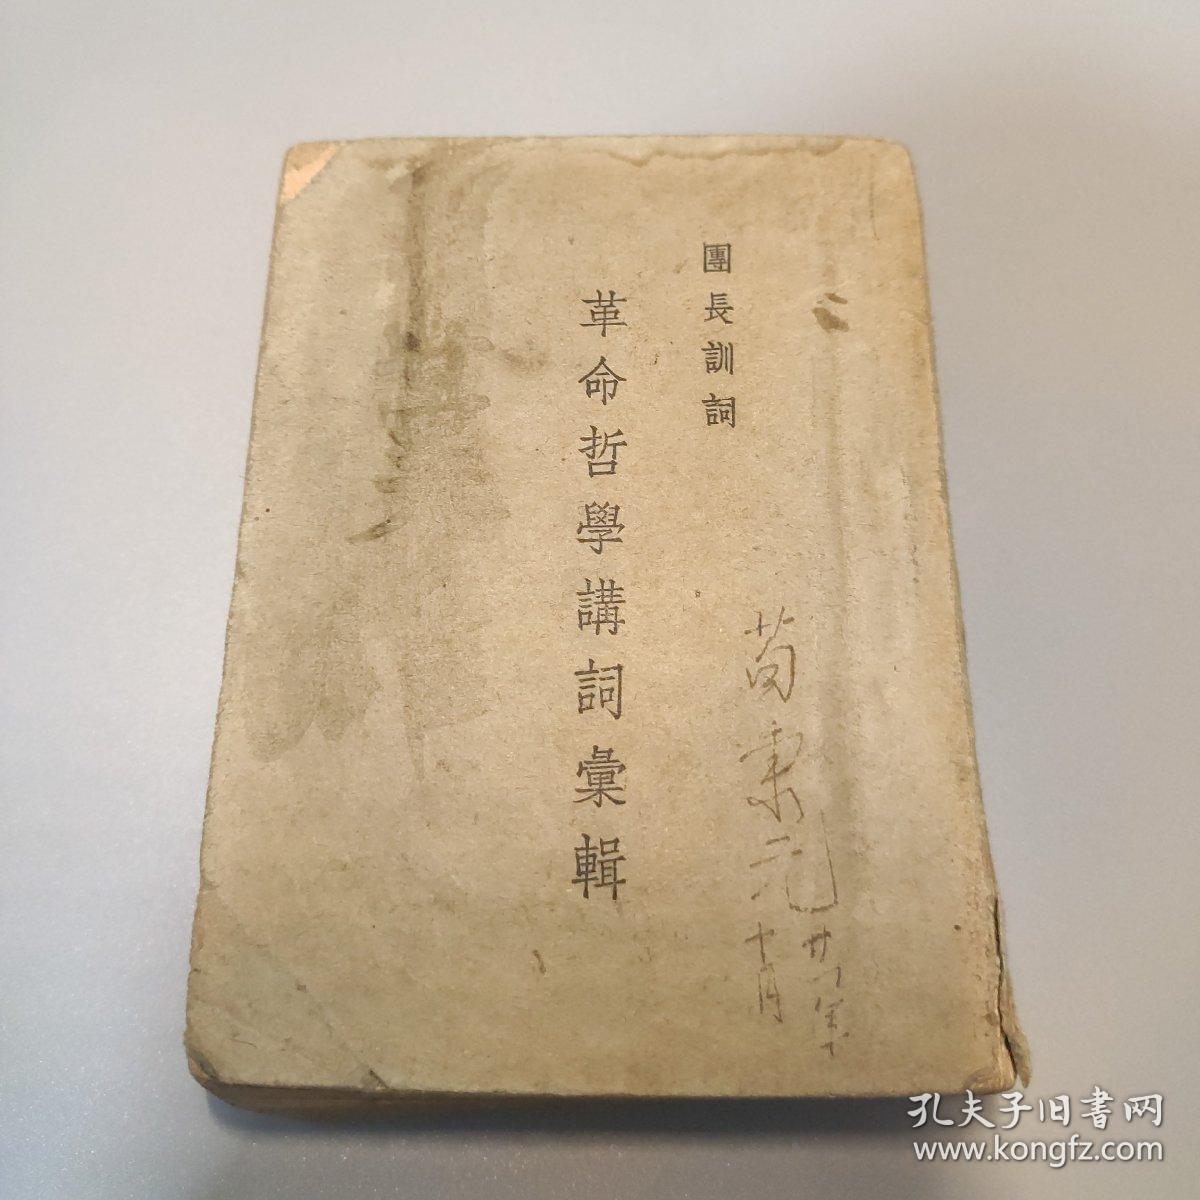 團長訓詞
革命哲學講詞彙輯
十月
孔夫子旧書网
www.kongfz.com